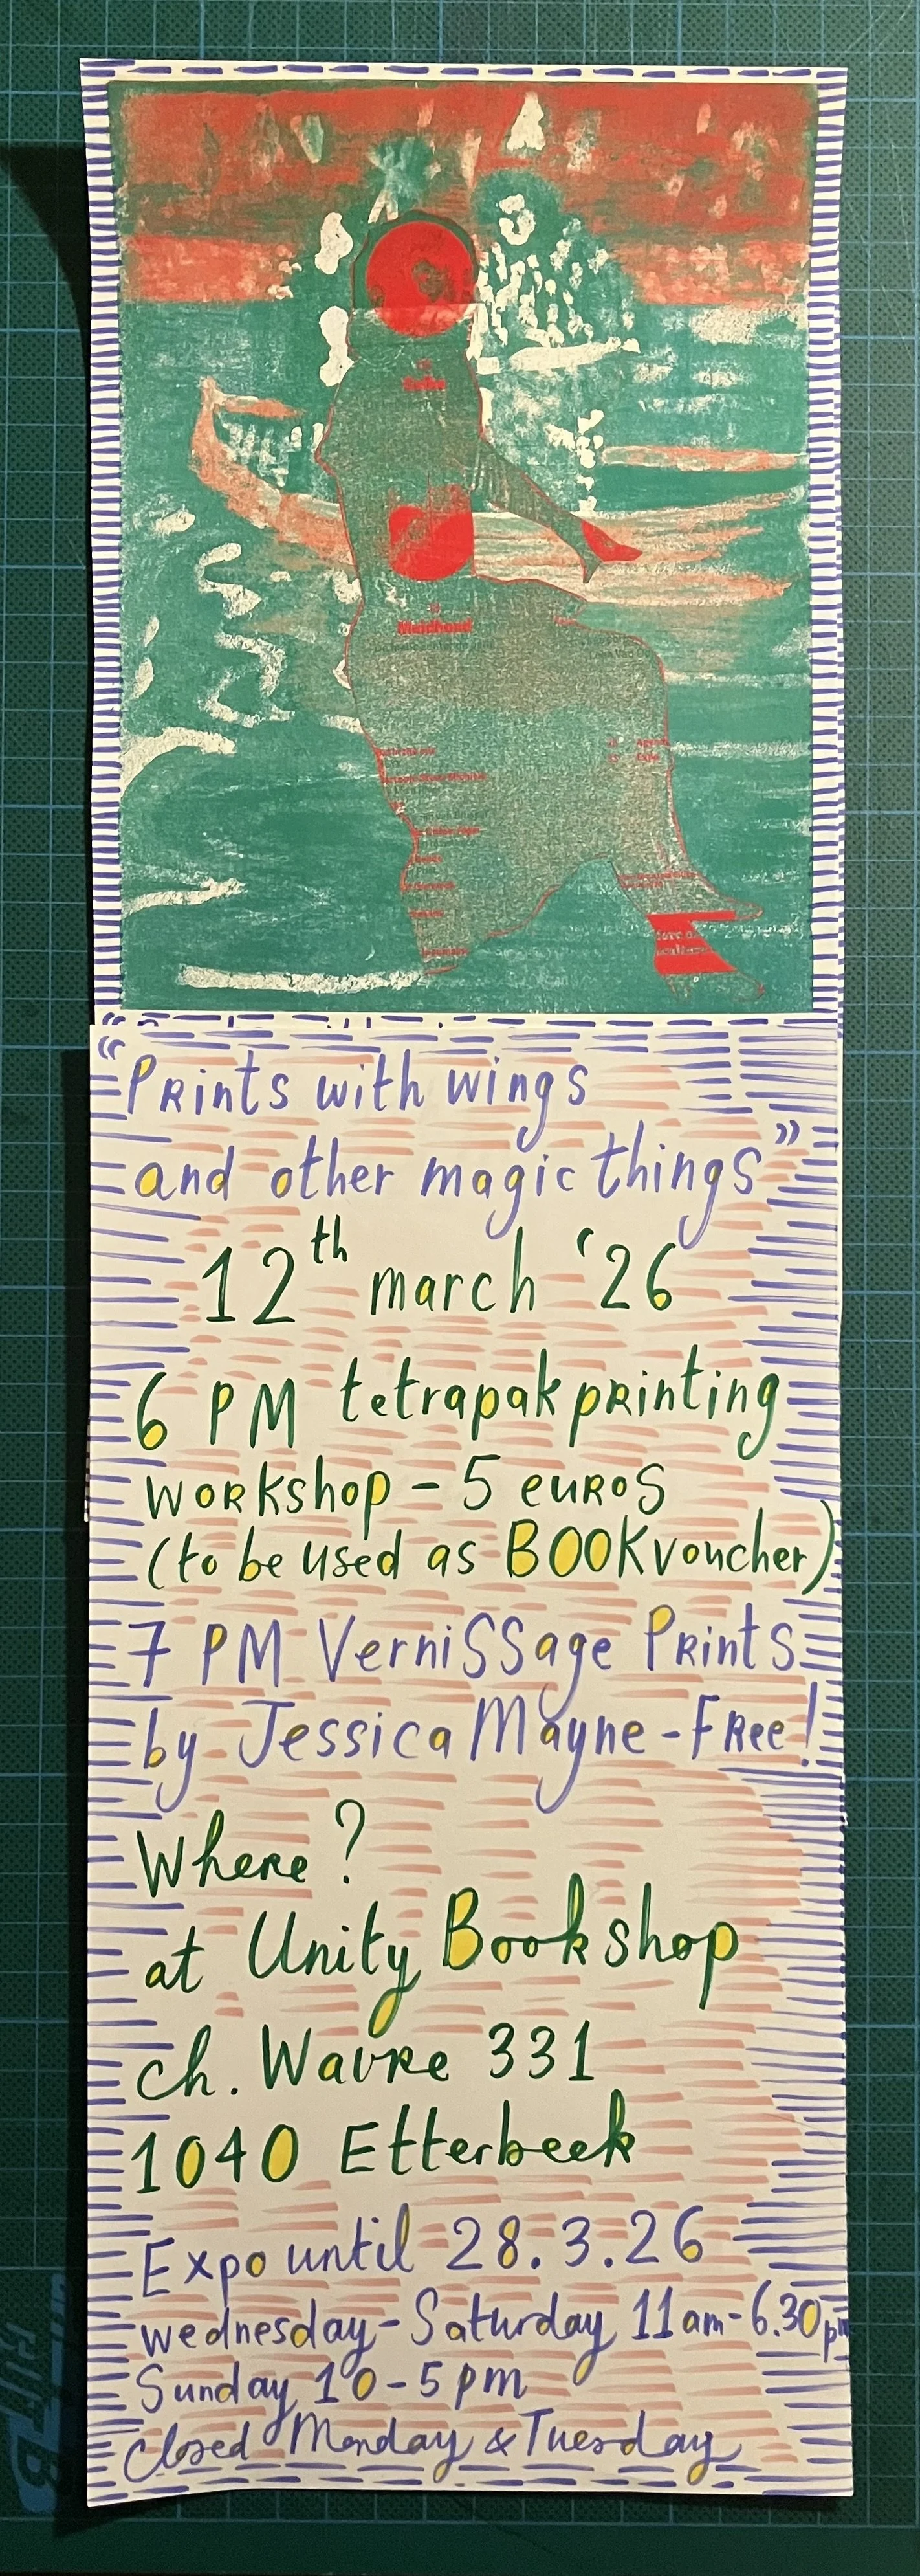 Meidhond
“Prints with wings
and other magic things”
12th march ‘26
6 PM tetrapakprinting
workshop - 5 euros
(to be used as BOOKvoucher)
7 PM VerniSSage Prints
by Jessica Mayne - FRee!
Where?
at Unity Bookshop
ch. Wavre 331
1040 Etterbeek
Expo until 28.3.26
wednesday - Saturday 11am - 6.30pm
Sunday 10 - 5 pm
Closed Monday & Tuesday